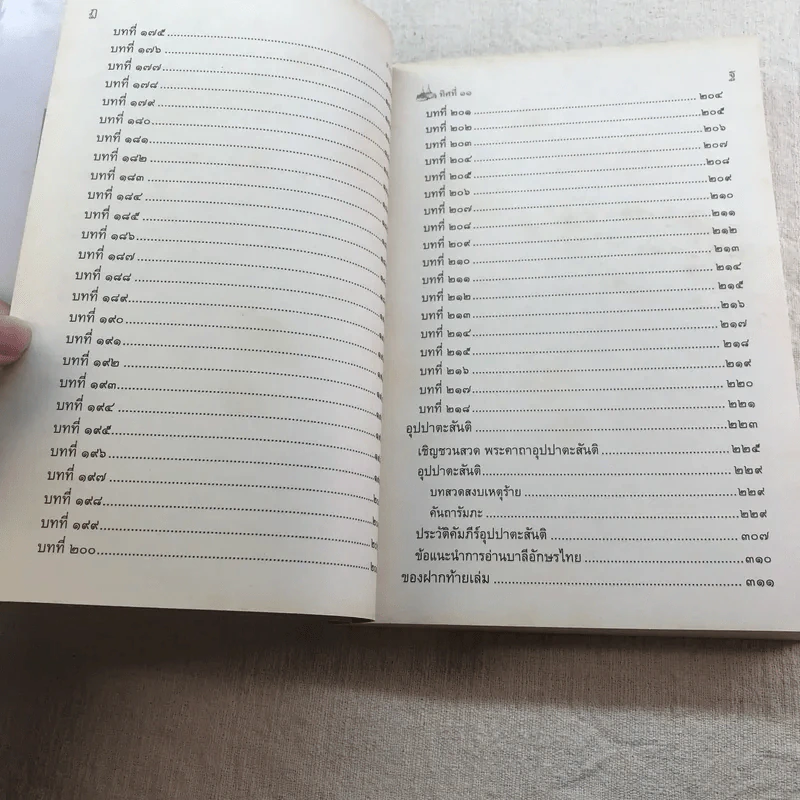 ฏ
บทที่ ๑๗๕
บทที่ ๑๗๖
บทที่ ๑๗๗
บทที่ ๑๗๘
บทที่ ๑๗๙
บทที่ ๑๘๐
บทที่ ๑๘๑
บทที่ ๑๘๒
บทที่ ๑๘๓
บทที่ ๑๘๔
บทที่ ๑๘๕
บทที่ ๑๘๖
บทที่ ๑๘๗
บทที่ ๑๘๘
บทที่ ๑๘๙
บทที่ ๑๙๐
บทที่ ๑๙๑
บทที่ ๑๙๒
บทที่ ๑๙๓
บทที่ ๑๙๔
บทที่ ๑๙๕
บทที่ ๑๙๖
บทที่ ๑๙๗
บทที่ ๑๙๘
บทที่ ๑๙๙
บทที่ ๒๐๐
ทิศที่ ๑๑ ฐ
บทที่ ๒๐๑ ๒๐๔
บทที่ ๒๐๒ ๒๐๕
บทที่ ๒๐๓ ๒๐๖
บทที่ ๒๐๔ ๒๐๗
บทที่ ๒๐๕ ๒๐๘
บทที่ ๒๐๖ ๒๐๙
บทที่ ๒๐๗ ๒๑๐
บทที่ ๒๐๘ ๒๑๑
บทที่ ๒๐๙ ๒๑๒
บทที่ ๒๑๐ ๒๑๓
บทที่ ๒๑๑ ๒๑๔
บทที่ ๒๑๒ ๒๑๕
บทที่ ๒๑๓ ๒๑๖
บทที่ ๒๑๔ ๒๑๗
บทที่ ๒๑๕ ๒๑๘
บทที่ ๒๑๖ ๒๑๙
บทที่ ๒๑๗ ๒๒๐
บทที่ ๒๑๘ ๒๒๑
อุปปาตะสันติ ๒๒๓
เชิญชวนสวด พระคาถาอุปปาตะสันติ ๒๒๕
อุปปาตะสันติ ๒๒๙
บทสวดสงบเหตุร้าย ๒๒๙
คันถารัมภะ ๒๒๙
ประวัติคัมภีร์อุปปาตะสันติ ๓๐๗
ข้อแนะนำการอ่านบาลีอักษรไทย ๓๑๐
ของฝากท้ายเล่ม ๓๑๑